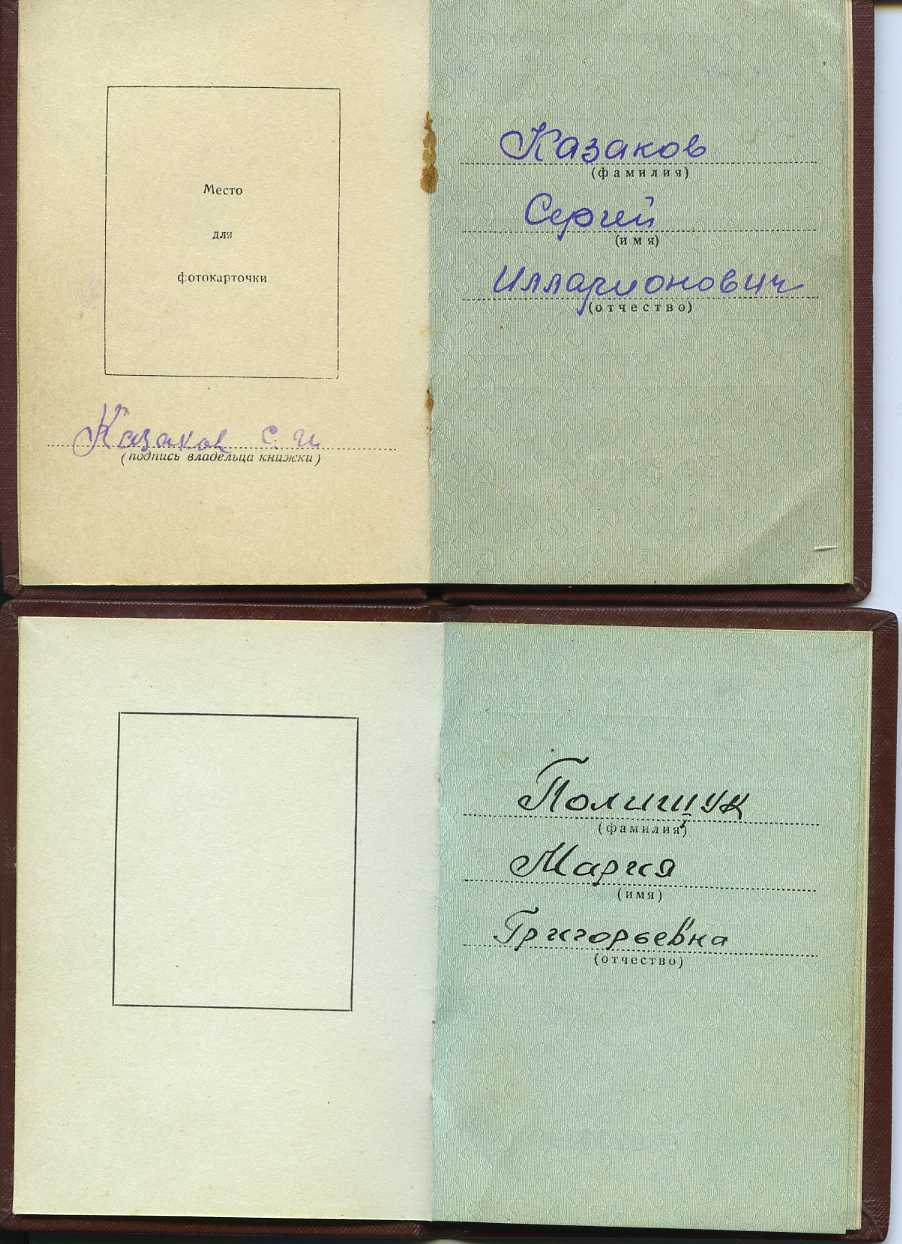 Место
для
фотокарточки
Казаков С. И.
(подпись владельца книжки)
Казаков
(фамилия)
Сергей
(имя)
Илларионович
(отчество)
Полищук
(фамилия)
Мария
(имя)
Григорьевна
(отчество)